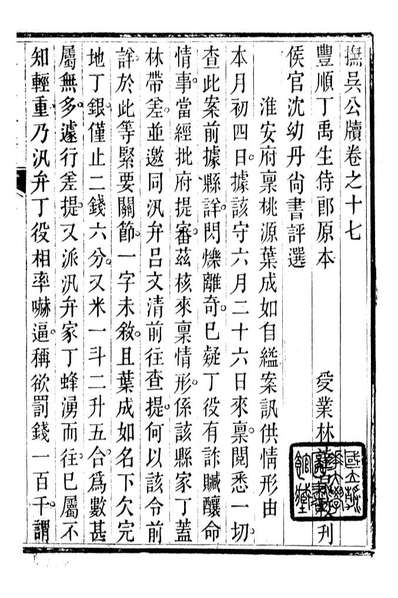 撫吳公牘卷之十七
豐順丁禹生侍郎原本 受業林
侯官沈幼丹尚書評選
淮安府稟桃源葉成如自縊案訊供情形由
本月初四日據該守六月二十六日來稟閱悉一切
查此案前據縣詳閃爍離奇已疑丁役有詐贓釀命
情事當經批府提審茲核來稟情形係該縣家丁蓋
林帶差並邀同汛弁呂文清前往查提何以該令前
詳於此等緊要關節一字未敘且葉成如名下欠完
地丁銀僅止二錢六分又米一斗二升五合爲數甚
屬無多遽行差提又派汛弁家丁蜂湧而往已屬不
知輕重乃汛弁丁役相率嚇逼稱欲罰錢一百千謂